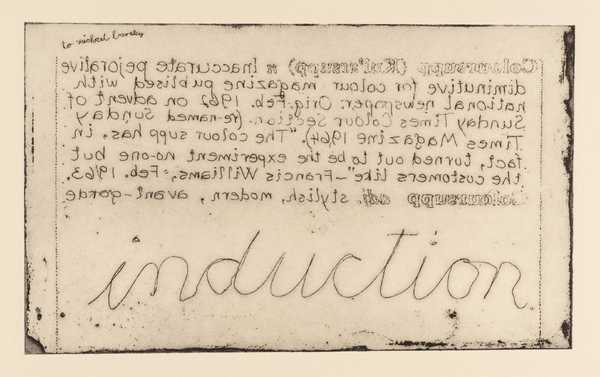 to michael
Coloursupp (Kul'ersupp) n Inaccurate pejorative
diminutive for colour magazine publised with
national newspaper. Orig. Feb. 1962 on advent of
Sunday Times Colour Section. (re-named Sunday
Times Magazine 1964). "The colour supp has, in
fact, turned out to be the experiment no-one but
the customers like"—Francis Williams,: Feb. 1963.
Coloursupp adj. stylish, modern, avant-garde
induction